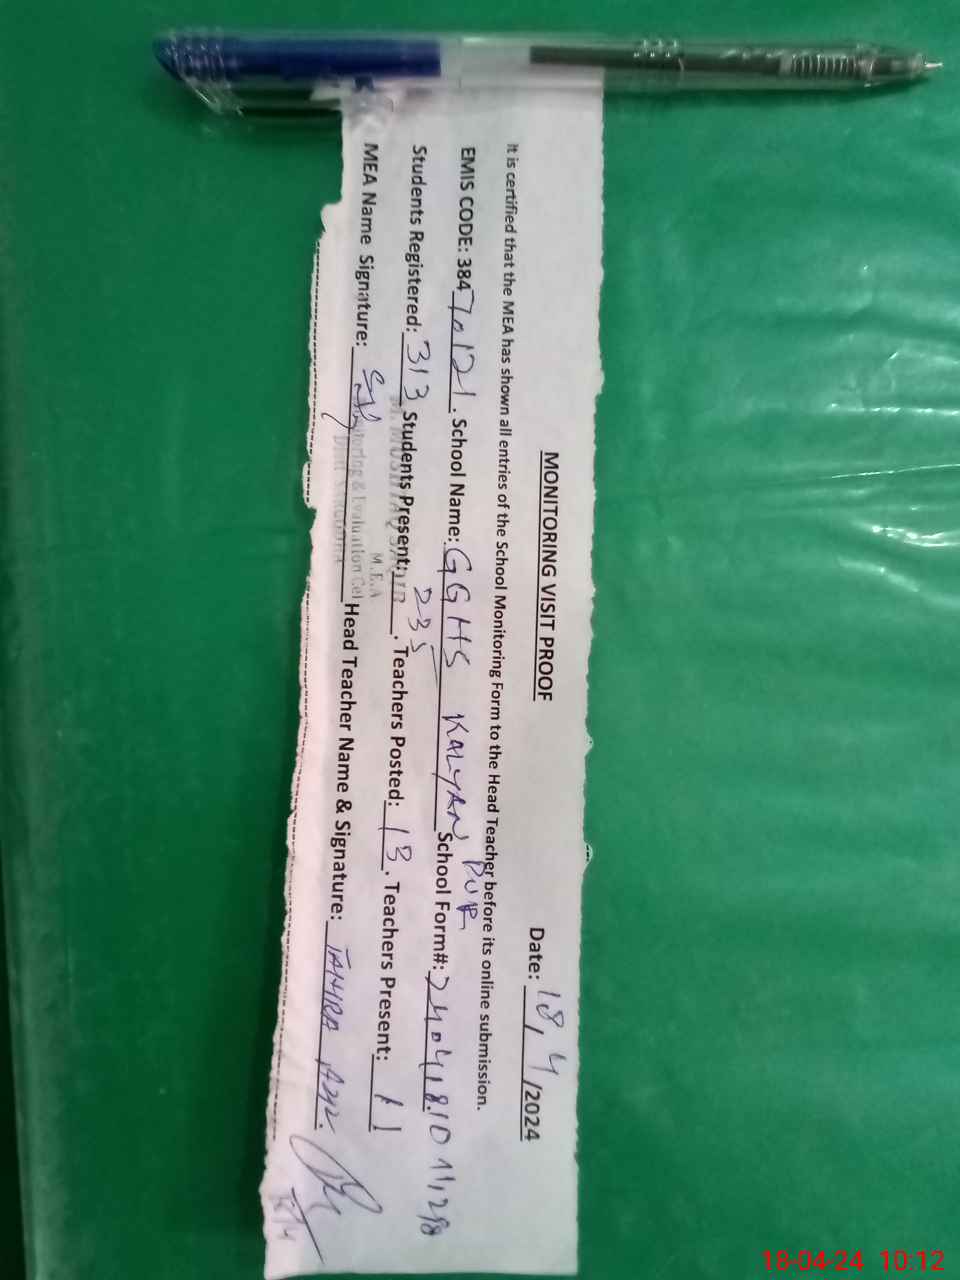 MONITORING VISIT PROOF
Date: 18, 4 /2024
It is certified that the MEA has shown all entries of the School Monitoring Form to the Head Teacher before its online submission.
EMIS CODE: 384 70121. School Name: GGHS KALYAN PUR School Form#:
Students Registered: 313 Students Present: 235. Teachers Posted: 13. Teachers Present: 11
MEA Name Signature: Head Teacher Name & Signature:
M.E.A
Monitoring & Evaluation Cel
18/4
18-04-24 10:12